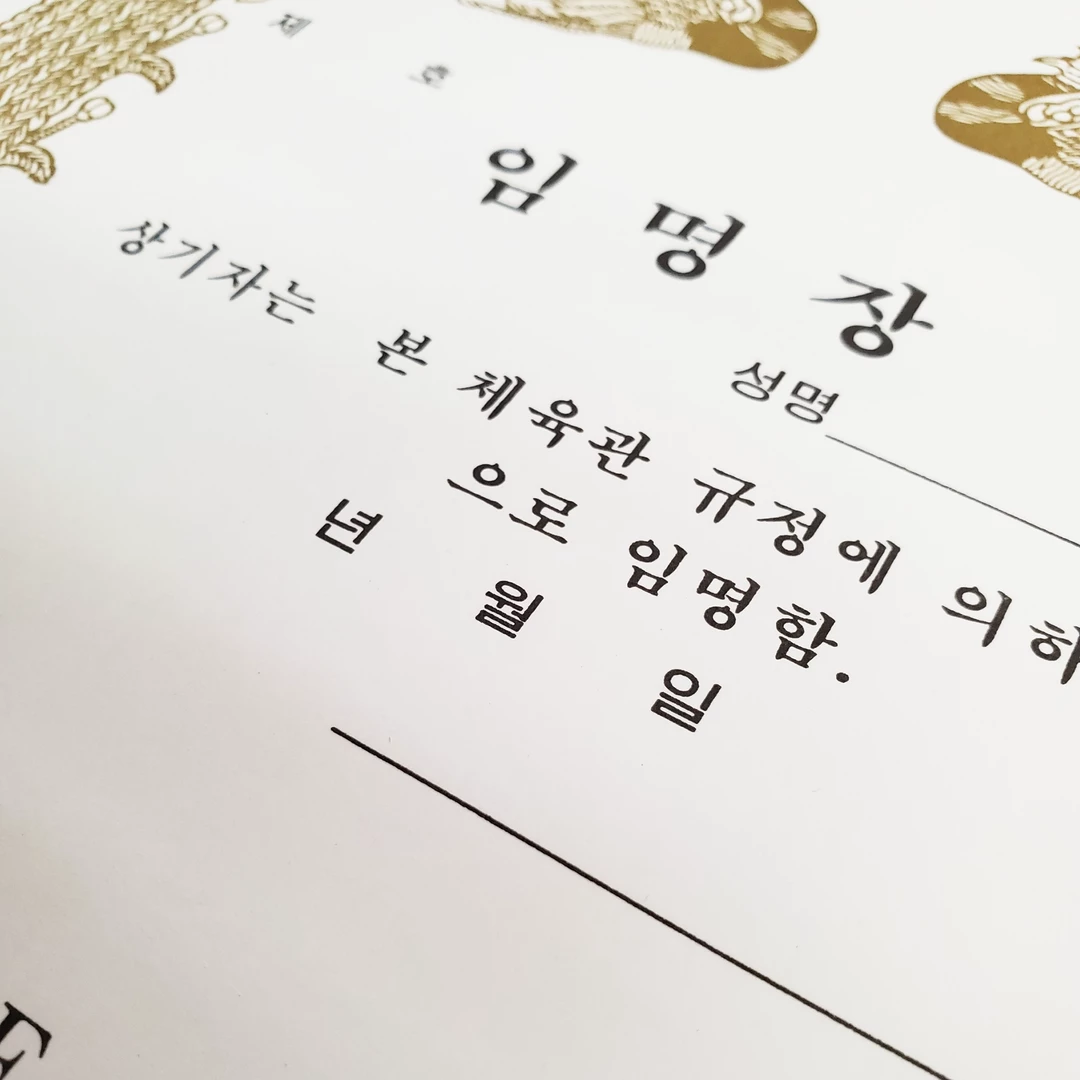 제 호
임 명 장
성명
상기자는 본 체육관 규정에 의하
으로 임명함.
년 월 일